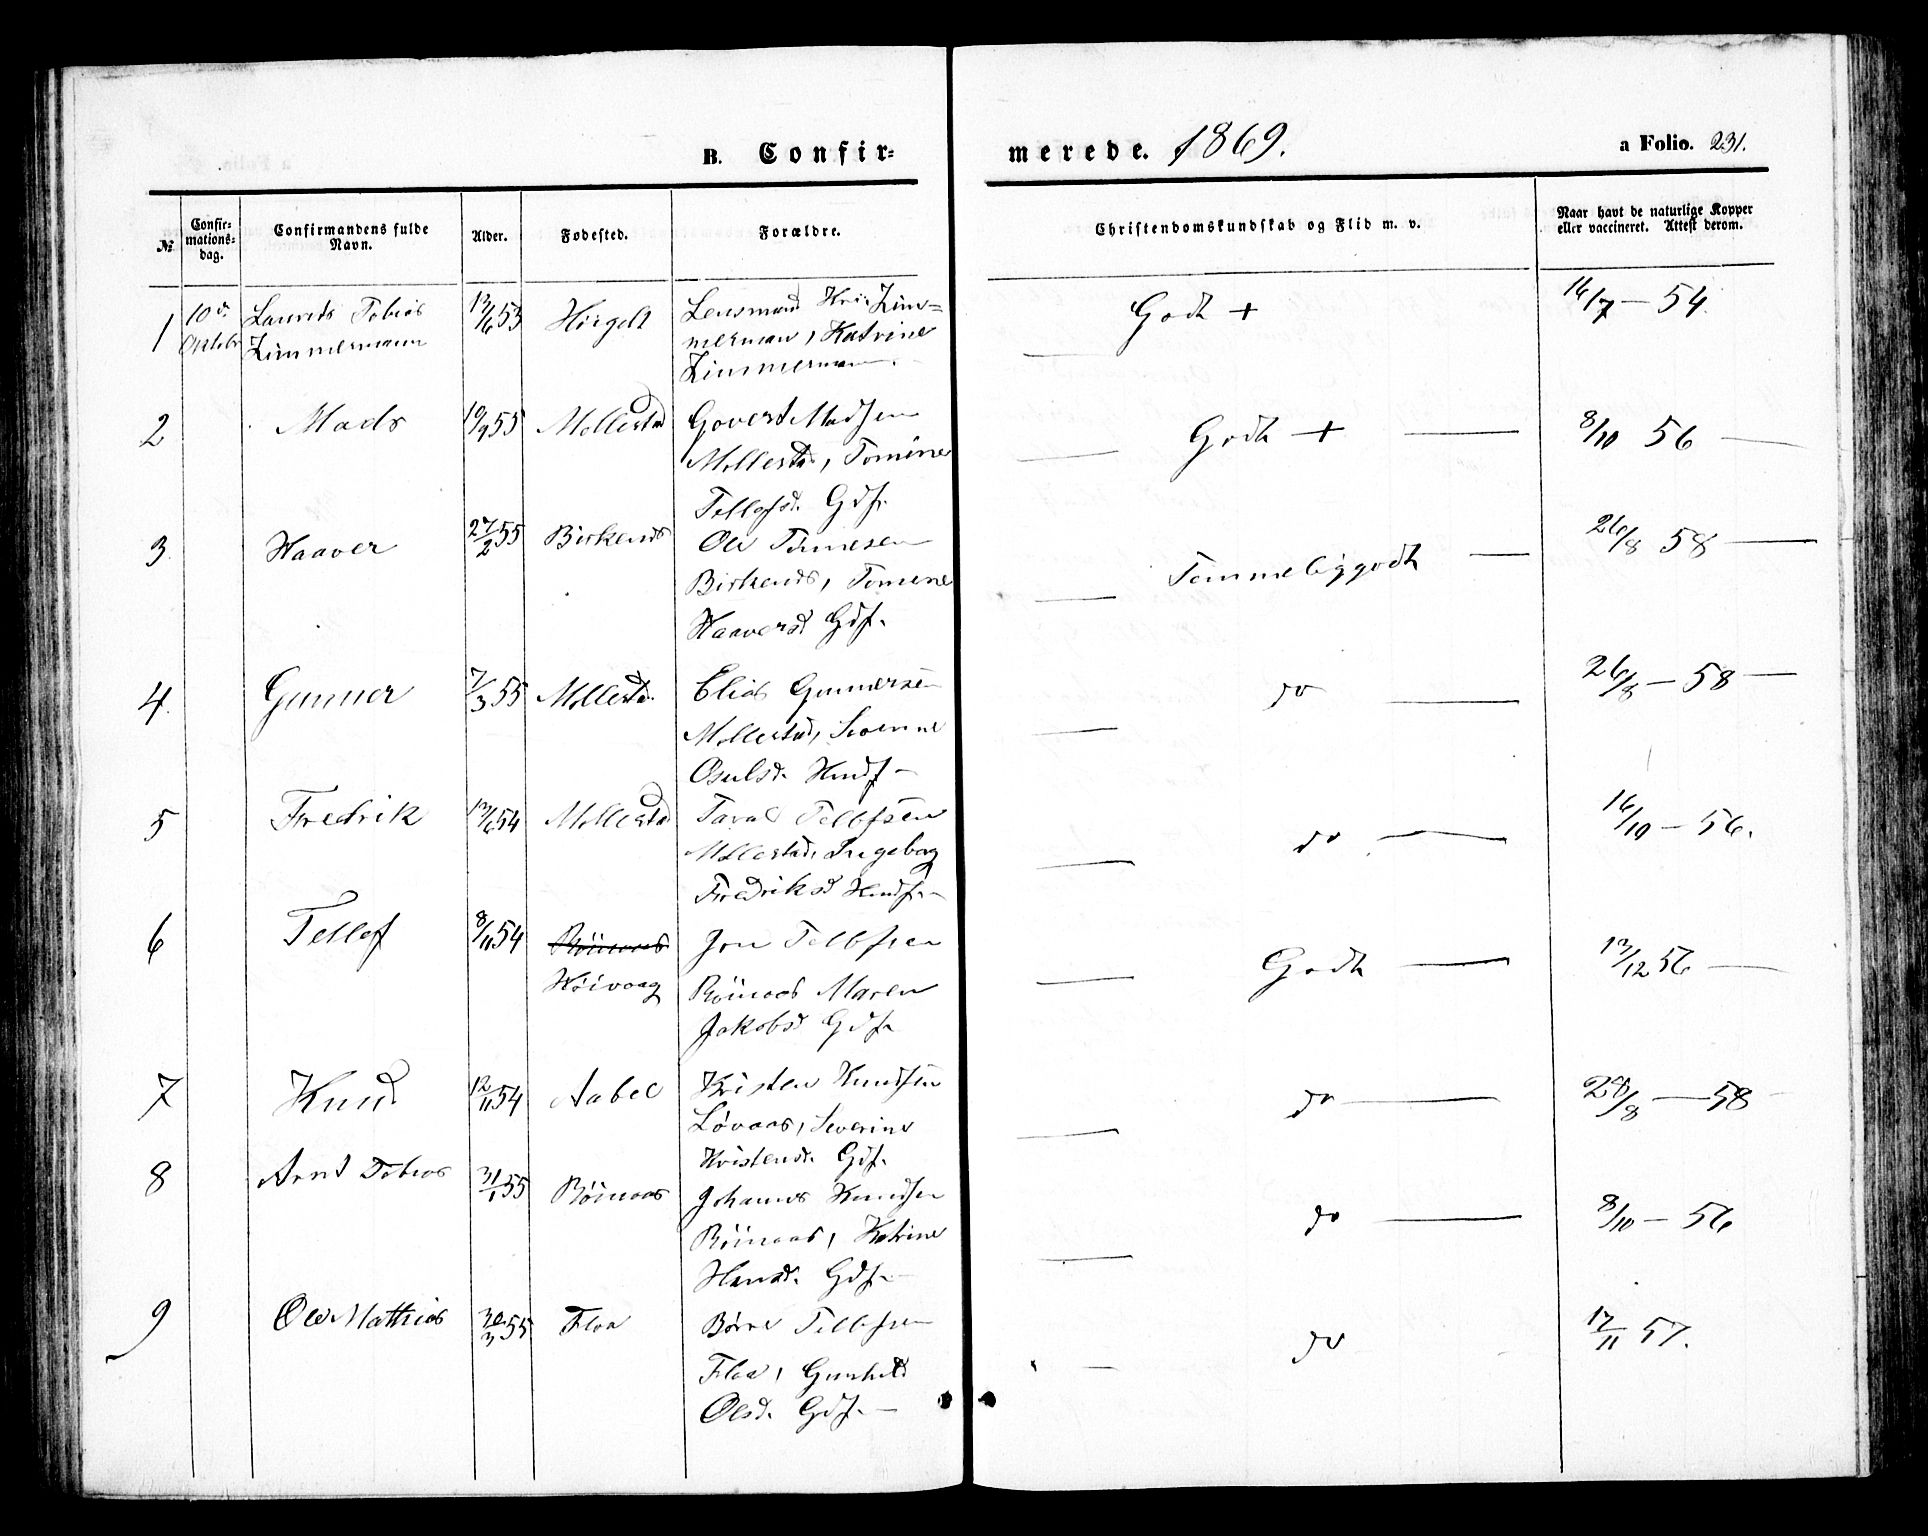 B. Confir-
merede. 1869.
a Folio. 231.
№
Confir-
mations-
dag.
Confirmandens fulde
Navn.
Alder.
Fødested.
Forældre.
Christendomskundskab og Flid m. v.
Naar havt de naturlige Kopper
eller vaccineret. Attest derom.
1
10d.
Oktobr
Laurits Tobias
Zimmermann
13/6 53
Lensmand Kris Zim=
merman, Katrine
Zimmerman.
Godt +
16/7 - 54.
2
Mads
19/9 55
Mollestad
Govert Madsen
Mollestad, Tomine
Tellefsd. Gdf.
Godt +
8/10 56
3.
Haaver
27/2 55
Birkenes
Ole Tomesen
Birkenes, Tomine
Haaversd Gdf.
Temmeliggodt
26/8 58
4.
Gunner
7/3 55
Mollestad.
Elias Gunnersen
Mollestad,
Osulsd. Hmdf
do
26/8 - 58
5
Fredrik
13/6 54
Mollestad
Taral Tellefsen
Mollestad, Ingeborg
Fredriksd Hmdf.
do
16/10 - 56.
6
Tellef
8/11 54
Røinaas
Høivaag
Jon Tellefsen
Røinaas Maren
Jakobsd Gdf.
Godt
13/12 56
7
Knud
12/11 54
Aabel
Kristen Knudsen
Løvaas, Severine
Kristensd. Gdf.
do
28/8 - 58
8
Arnt Tobias
31/1 55
Røinaas
Johannes Knudsen
Røinaas, Katrine
Hansd. Gdf.
do
8/10 - 56
9
Ole Mathias
30/3 55
Flaa
Børre Tellefsen
Flaa, Gunhild
Olsd. Gdf.
do
17/11 57.